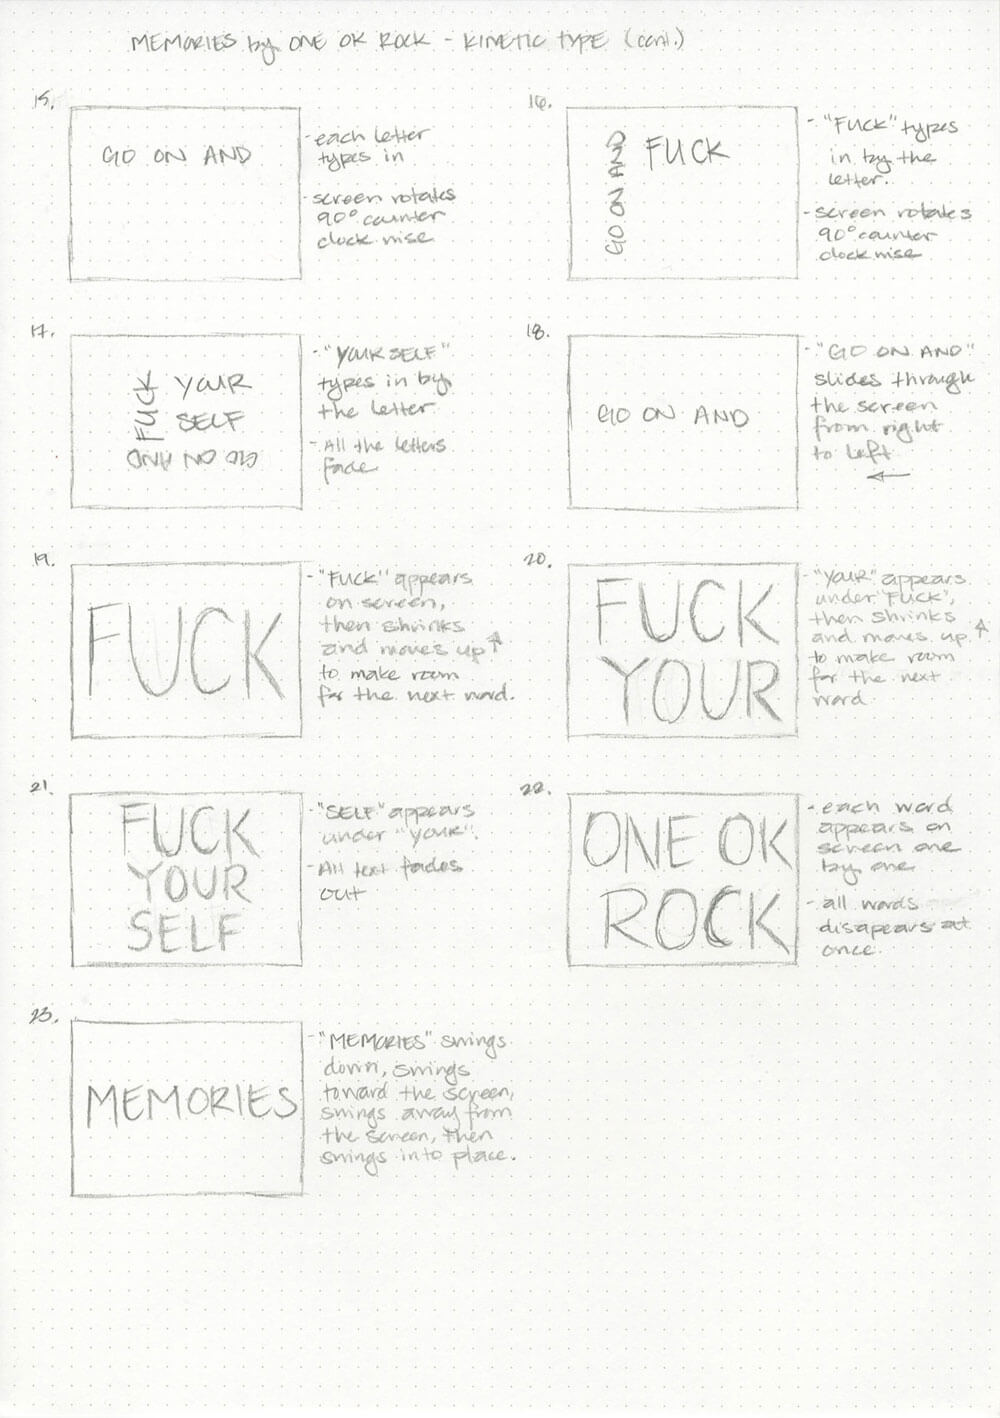 MEMORIES by ONE OK ROCK - KINETIC TYPE (cont.)
15.
GO ON AND
- each letter
types in
- screen rotates
90° counter
clock wise
16.
GO ON AND
FUCK
- "FUCK" types
in by the
letter.
- screen rotates
90° counter
clock wise
17.
FUCK
YOUR
SELF
GO ON AND
- "YOUR SELF"
types in by
the letter
- All the letters
fade
18.
GO ON AND
- "GO ON AND"
slides through
the screen
from right
to left
←
19.
FUCK
- "FUCK" appears
on screen,
then shrinks
and moves up ↑
to make room
for the next word.
20.
FUCK
YOUR
- "YOUR" appears
under "FUCK",
then shrinks
and moves up ↑
to make room
for the next
word
21.
FUCK
YOUR
SELF
- "SELF" appears
under "YOUR".
- All text fades
out
22.
ONE OK
ROCK
- each word
appears on
screen one
by one
- all words
disapears at
once.
23.
MEMORIES
- "MEMORIES" swings
down, swings
toward the screen,
swings away from
the screen, then
swings into place.